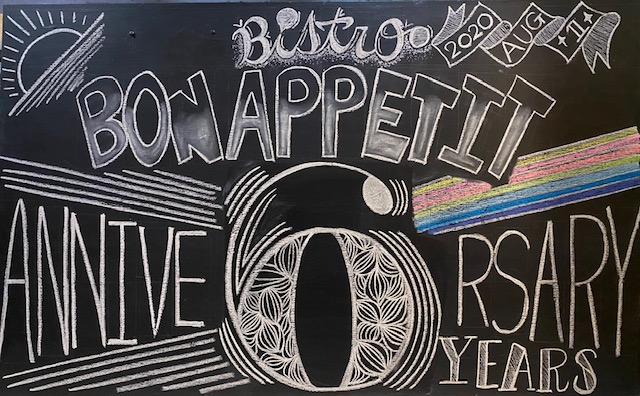 Bistro
2020 AUG 11
BON APPETIT
6
ANNIVERSARY
YEARS